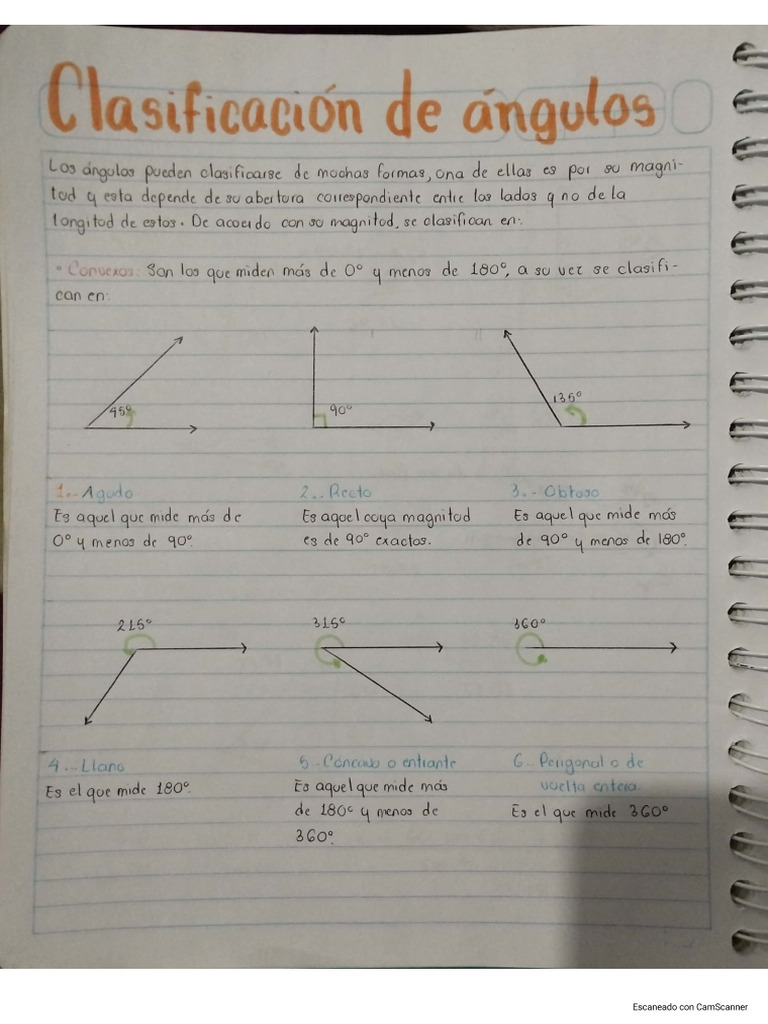 Clasificación de ángulos
Los ángulos pueden clasificarse de muchas formas, una de ellas es por su magni-
tud y esta depende de su abertura correspondiente entre los lados y no de la
longitud de estos. De acuerdo con su magnitud, se clasifican en:
• Convexos: Son los que miden más de 0° y menos de 180°, a su vez se clasifi-
can en:
45°
90°
135°
1.- Agudo
Es aquel que mide más de
0° y menos de 90°.
2.- Recto
Es aquel cuya magnitud
es de 90° exactos.
3.- Obtuso
Es aquel que mide más
de 90° y menos de 180°.
215°
315°
360°
4.- Llano
Es el que mide 180°.
5.- Cóncavo o entrante
Es aquel que mide más
de 180° y menos de
360°.
6.- Perigonal o de
vuelta entera.
Es el que mide 360°
Escaneado con CamScanner